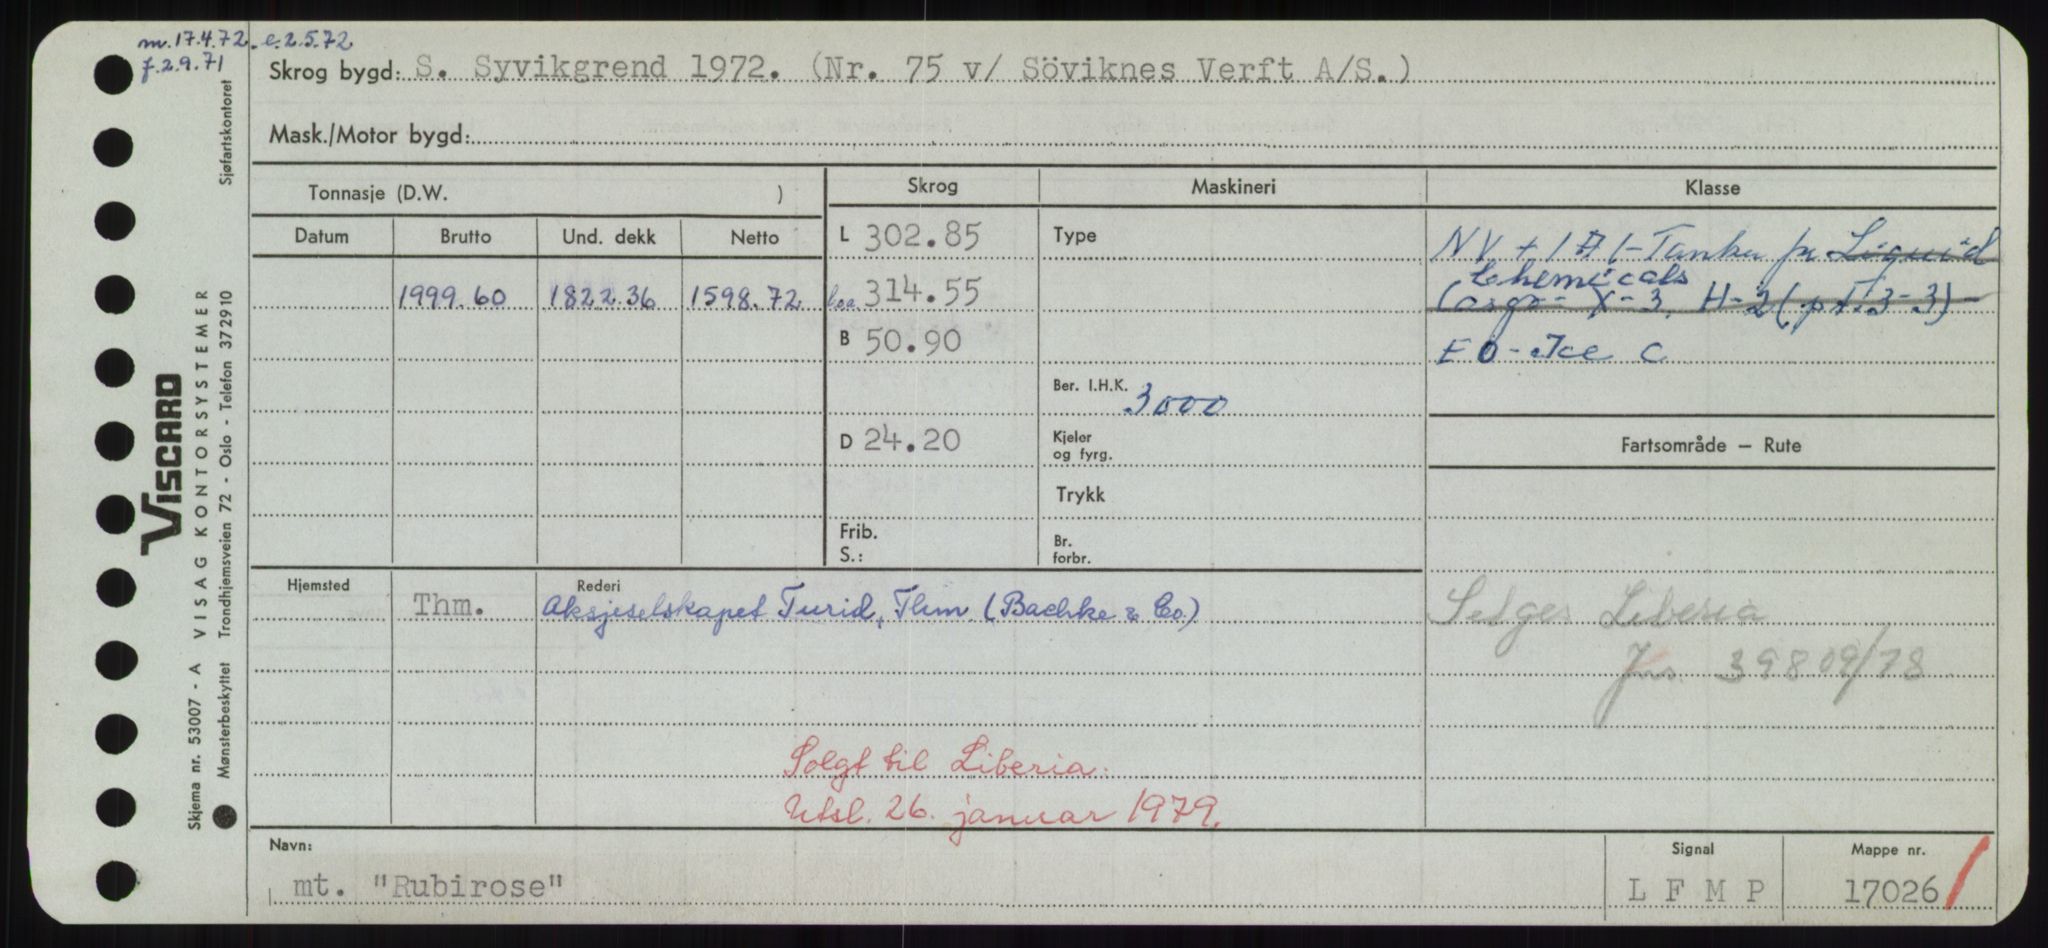 m. 17.4.72. e. 2.5.72
f. 2.9.71
Skrog bygd: S. Syvikgrend 1972. (Nr. 75 v/ Söviknes Verft A/S.)
Mask./Motor bygd:
Tonnasje (D.W. )
Skrog
Maskineri
Klasse
Datum Brutto Und. dekk Netto
L 302.85
Type
NV + 1A1 - Tanker for Liquid
Chemicals
1999.60 1822.36 1598.72
loa. 314.55
Cargo - X-3, H-2 (pt. 3-3) -
B 50.90
EO - Ice C
Ber. I.H.K. 3000
D 24.20
Kjeler
og fyrg.
Fartsområde — Rute
Trykk
Frib.
S.:
Br.
forbr.
Hjemsted
Rederi
Thm. Aksjeselskapet Turid, Thm. (Bachke & Co.)
Selges Liberia
Jns. 39809/78
Solgt til Liberia.
Utsl. 26. januar 1979.
Navn:
mt. "Rubirose"
Signal
L F M P
Mappe nr.
17026
Skjema nr. 53007 - A VISAG KONTORSYSTEMER
VISCARD
Mønsterbeskyttet Trondhjemsveien 72 - Oslo - Telefon 372910
Sjøfartskontoret